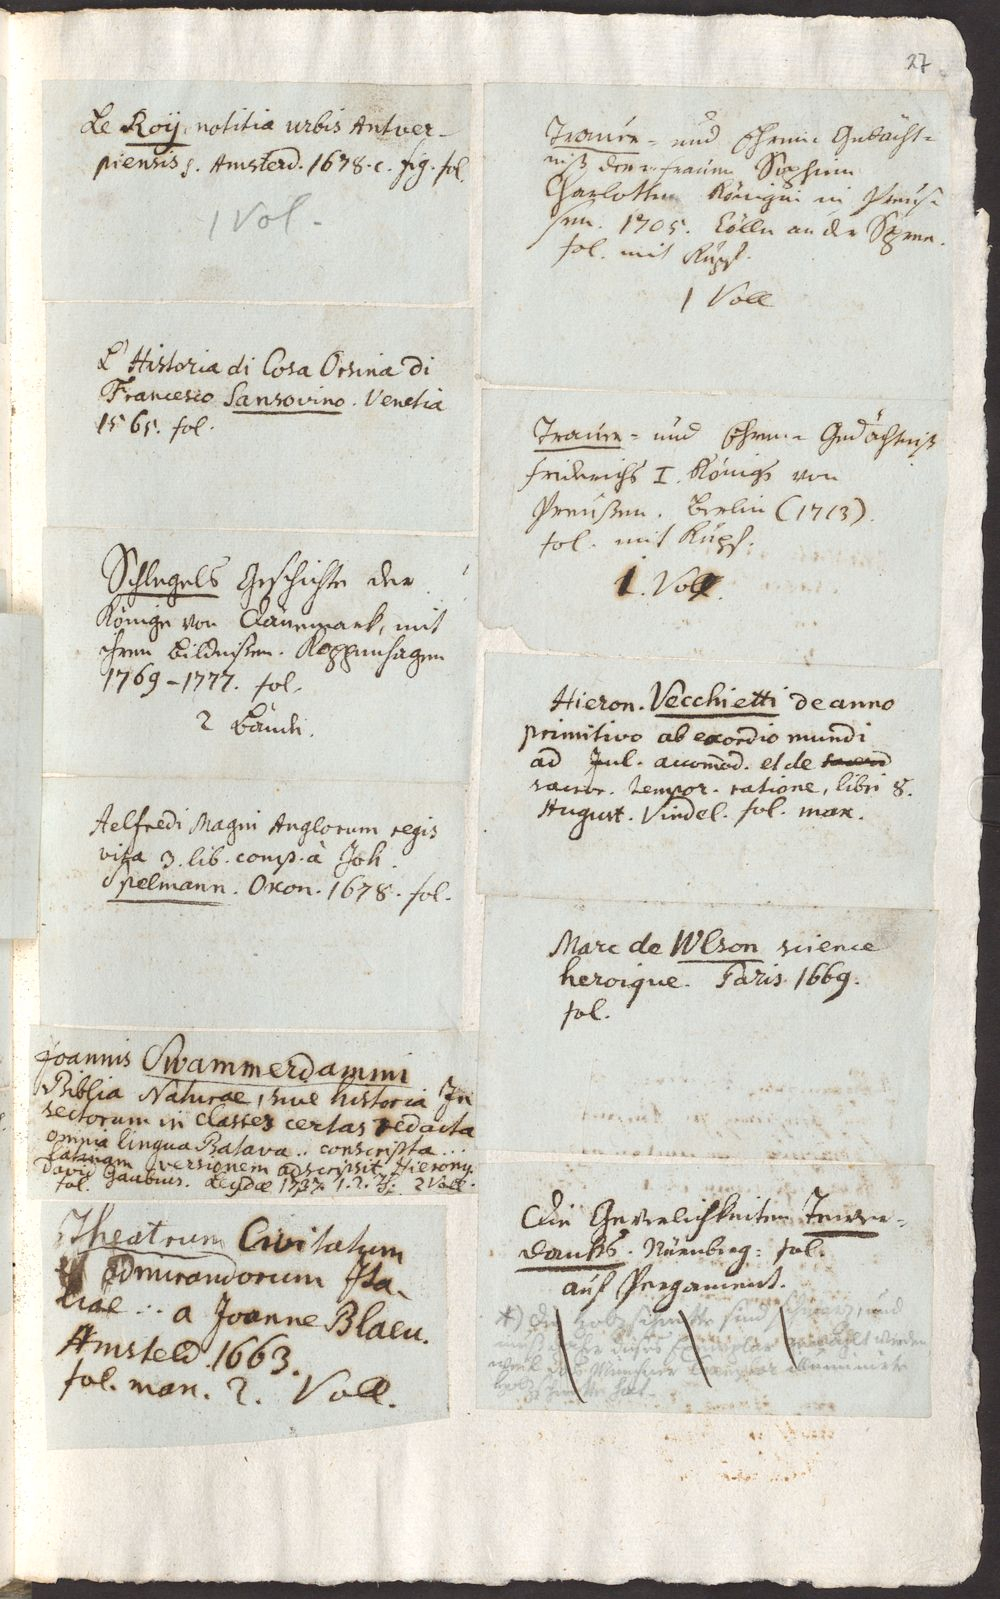 27
Le Roÿ notitia urbis Antver-
piensis s. Amsterd. 1678. c. fig. fol.
1 Vol.
L'Historia di Cosa Orsina di
Francesco Sansovino. Venetia
1565. fol.
Schlegels Geschichte der
Könige von Dänemark, mit
ihren Bildnißen. Koppenhagen
1769-1777. fol.
2 Bände.
Aelfredi Magni Anglorum regis
vita 3. lib. comp. à Joh.
Spelmann. Oxon. 1678. fol.
Joannis Swammerdammi
Biblia Naturae, sive historia In
sectorum in classes certas redacta
omnia lingua Batava .. conscripta ...
latinam versionem adscripsit Hierony.
David Gaubius. Leydæ 1737. 1. 2. 2 Voll.
fol.
Theatrum Civitatum
admirandorum Ita-
liae ... a Joanne Blaeu.
Amsteld. 1663.
fol. max. 2. Voll.
Trauer- und Ehren- Gedächt-
niß der Frauen Sophien
Charlotten Königin in Preus-
sen. 1705. Cölln an der Spree.
fol. mit Kupf.
1 Voll
Trauer- und Ehren- Gedächtniß
Friderichs I. Königs von
Preußen. Berlin (1713).
fol. mit Kupf.
1. Voll.
Hieron. Vecchietti de anno
primitivo ab exordio mundi
ad Jul. accomod. et de
sacror. tempor. ratione, libri 8.
August. Vindel. fol. max.
Marc de Wlson science
heroique. Paris. 1669.
fol.
Die Geverlichkeiten Tewr-
danks. Nürnberg: fol.
auf Pergament.
*) die Holzschnitte sind schwarz, und
muß daher dieses Exemplar gewählt werden,
weil das Münchner Exemplar illuminirte
Holzschnitte hat.